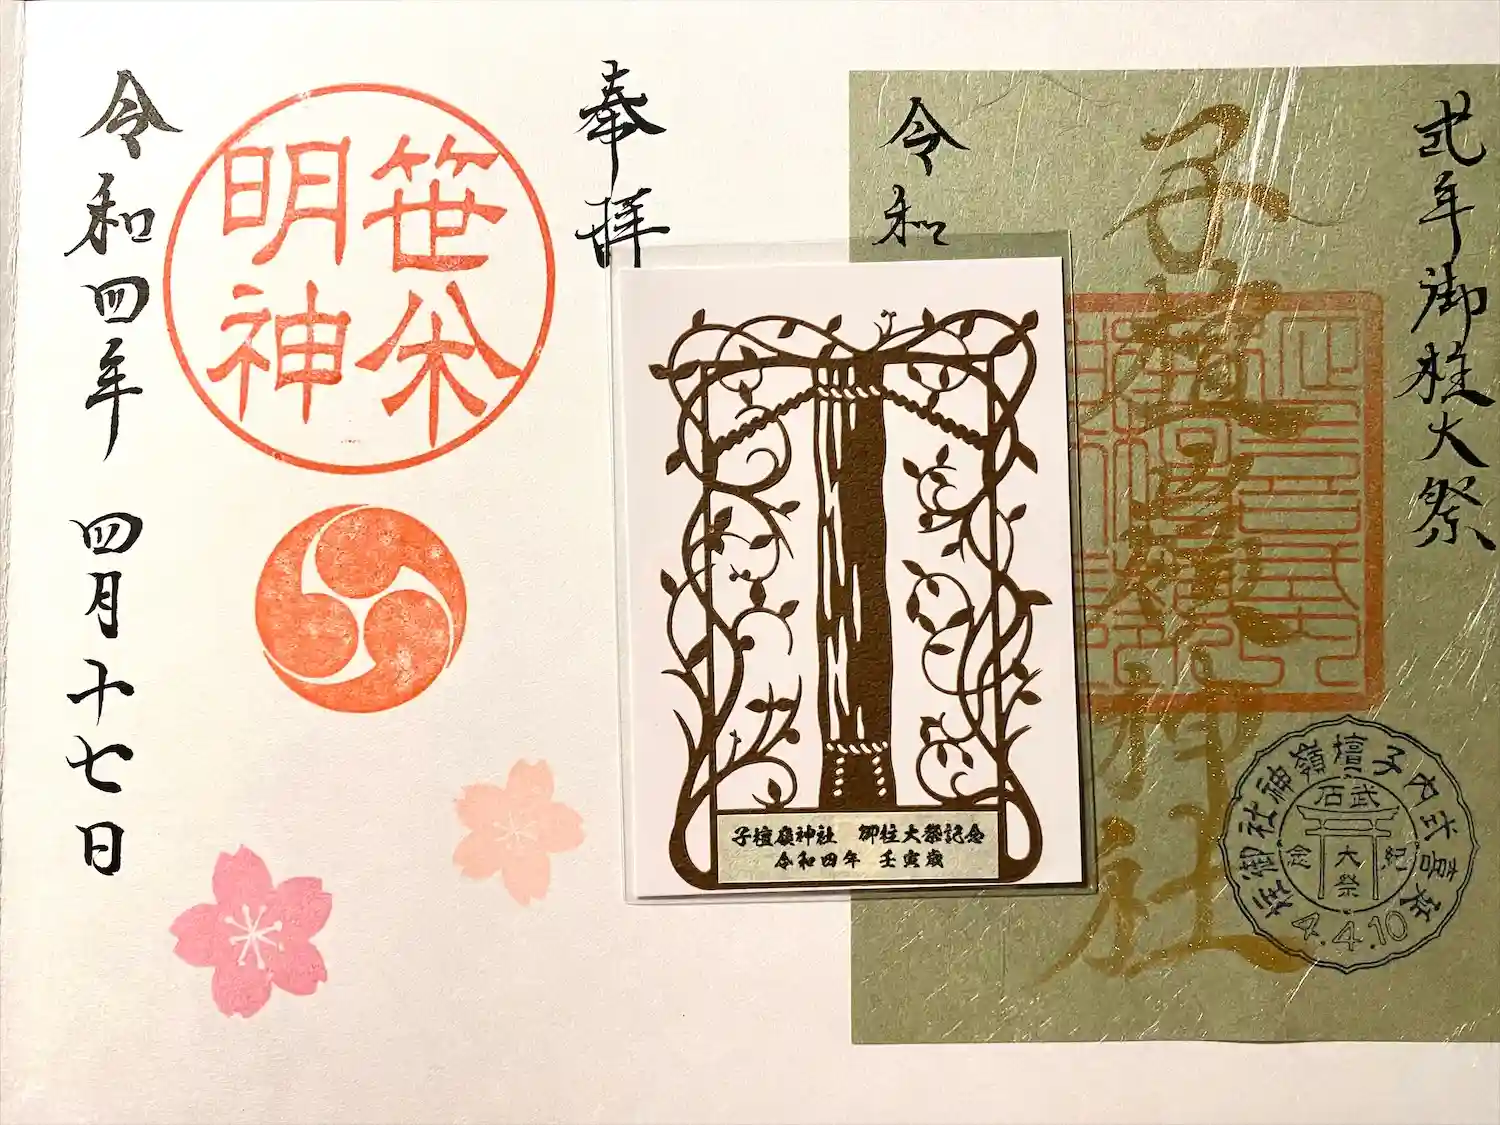 式年御柱大祭
子檀嶺神社
令和
子檀嶺神社御柱
武石
大祭
4.4.10
子檀嶺神社 御柱大祭記念
令和四年 壬寅歳
奉拝
笹
明神
令和四年 四月十七日